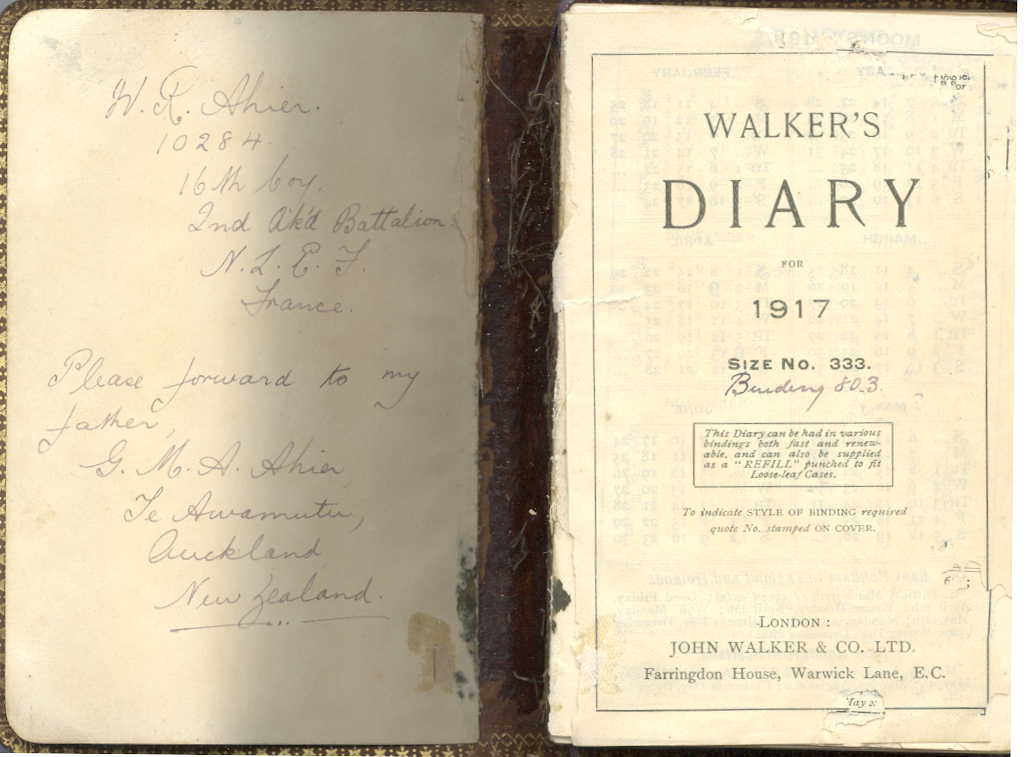 W. R. Ahier.
10284.
16th Coy.
2nd Ak'd Battalion
N. Z. E. F.
France.
Please forward to my
father,
G. M. A. Ahier,
Te Awamutu,
Auckland,
New Zealand.
WALKER'S
DIARY
FOR
1917
SIZE NO. 333.
Binding 803.
This Diary can be had in various
bindings both fast and renew-
able, and can also be supplied
as a "REFILL" punched to fit
Loose-leaf Cases.
To indicate STYLE OF BINDING required
quote No. stamped ON COVER.
LONDON:
JOHN WALKER & CO. LTD.
Farringdon House, Warwick Lane, E.C.